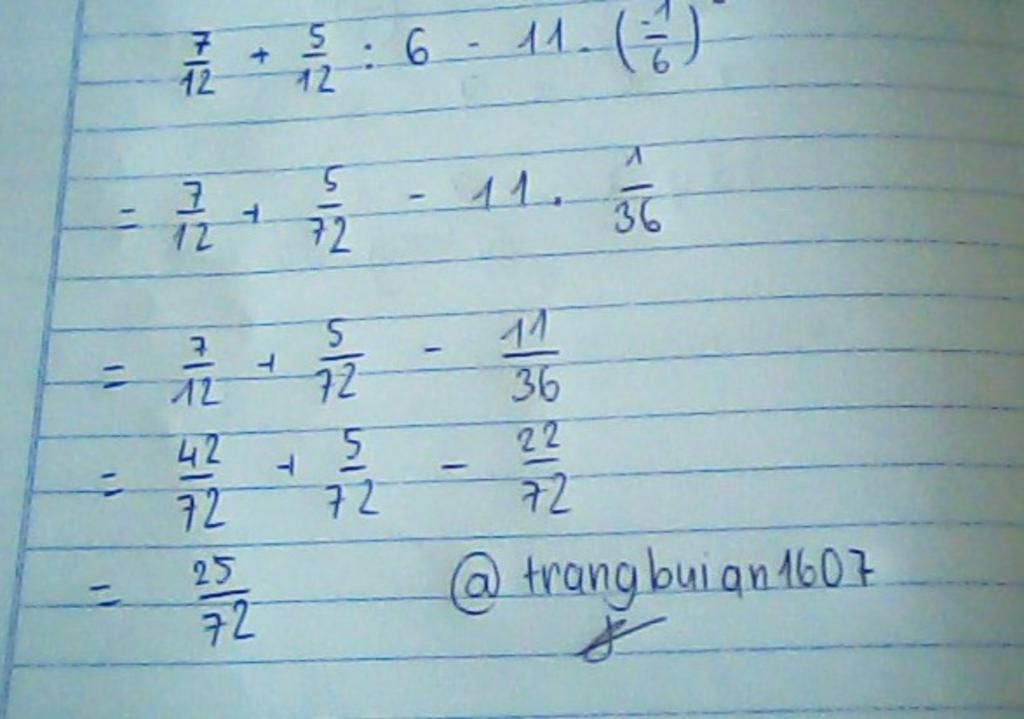 7/12 + 5/12 : 6 - 11 . (-1/6)
= 7/12 + 5/72 - 11 . 1/36
= 7/12 + 5/72 - 11/36
= 42/72 + 5/72 - 22/72
= 25/72 @trangbuian1607